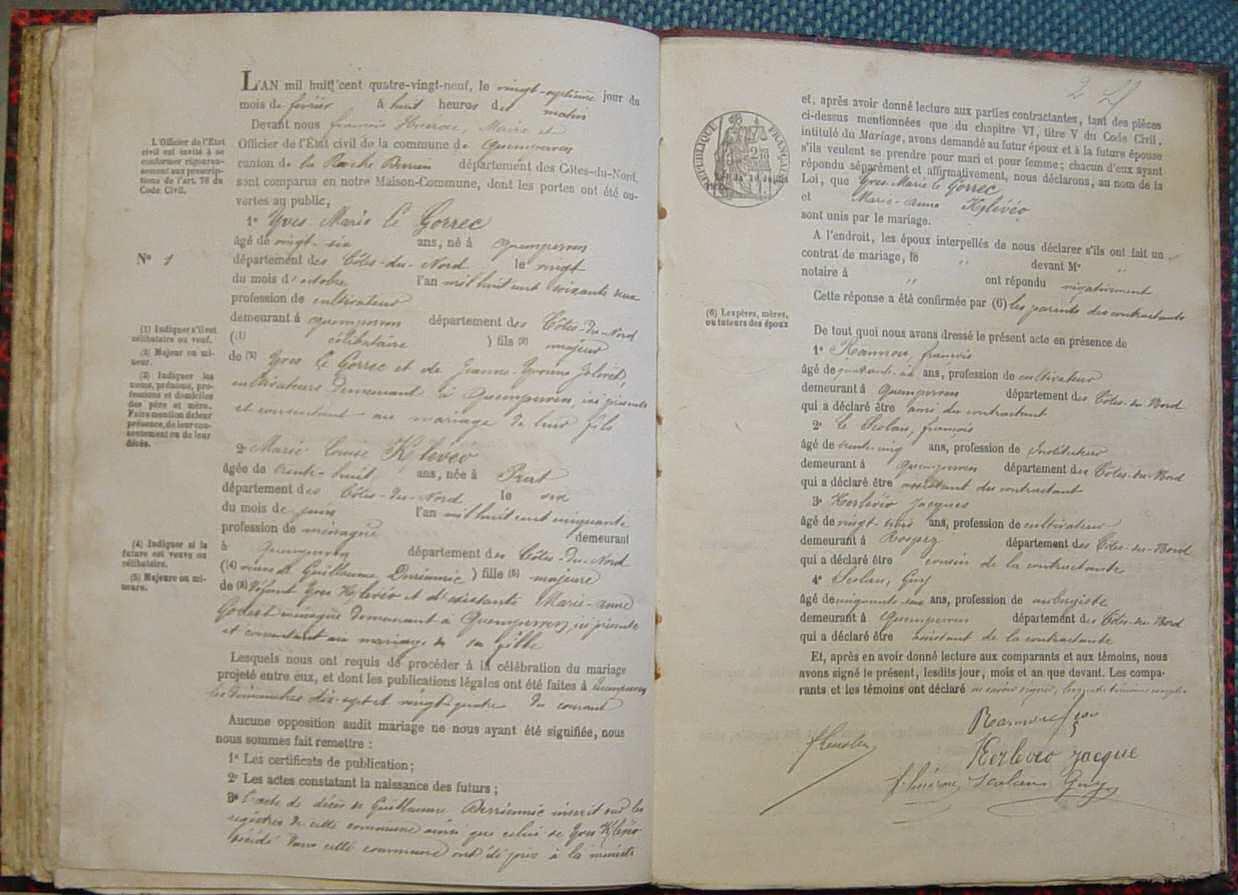 L'AN mil huit cent quatre-vingt-neuf, le vingt-septième jour du
mois de février à huit heures du matin
Devant nous françois Maire et
Officier de l'État civil de la commune de Quemperven
canton de la Roche Derrien département des Côtes-du-Nord,
sont comparus en notre Maison-Commune, dont les portes ont été ou-
vertes au public,
1° Yves Marie le Gorrec
âgé de vingt-six ans, né à Quemperven
département des Côtes-du-Nord le vingt
du mois d'octobre l'an mil huit cent soixante deux
profession de cultivateur
demeurant à Quemperven département des Côtes-du-Nord
(1) célibataire ) fils (2) majeur
de (3) Yves le Gorrec et de Jeanne-Yvonne
cultivateurs demeurant à Quemperven, ici présents
et consentant au mariage de leur fils
2° Marie Louise Kerlévéo
âgée de trente-huit ans, née à Prat
département des Côtes-du-Nord le six
du mois de juin l'an mil huit cent cinquante
profession de ménagère demeurant
à Quemperven département des Côtes-du-Nord
(4) veuve de Guillaume ) fille (5) majeure
de (3) défunt Yves Klévéo et d'existante Marie-Anne
ménagère demeurant à Quemperven, ici présente
et consentant au mariage de sa fille
Lesquels nous ont requis de procéder à la célébration du mariage
projeté entre eux, et dont les publications légales ont été faites à Quemperven
les dimanches dix-sept et vingt-quatre du courant
Aucune opposition audit mariage ne nous ayant été signifiée, nous
nous sommes fait remettre :
1° Les certificats de publication ;
2° Les actes constatant la naissance des futurs ;
3° l'acte de décès de Guillaume inscrit sur les
registres de cette commune ainsi que celui de Yves Klévéo
décédé dans cette commune ont été pris à la minute
L'Officier de l'État
civil est invité à se
conformer rigoureu-
sement aux prescrip-
tions de l'art. 76 du
Code Civil.
N° 1
(1) Indiquer s'il est
célibataire ou veuf.
(2) Majeur ou mi-
neur.
(3) Indiquer les
noms, prénoms, pro-
fessions et domiciles
des père et mère.
Faire mention de leur
présence, de leur con-
sentement ou de leur
décès.
(4) Indiquer si la
future est veuve ou
célibataire.
(5) Majeure ou mi-
neure.
et, après avoir donné lecture aux parties contractantes, tant des pièces
ci-dessus mentionnées que du chapitre VI, titre V du Code Civil,
intitulé du Mariage, avons demandé au futur époux et à la future épouse
s'ils veulent se prendre pour mari et pour femme ; chacun d'eux ayant
répondu séparément et affirmativement, nous déclarons, au nom de la
Loi, que Yves Marie le Gorrec
et Marie-Anne Klévéo
sont unis par le mariage.
A l'endroit, les époux interpellés de nous déclarer s'ils ont fait un
contrat de mariage, le " devant Me "
notaire à " ont répondu négativement
Cette réponse a été confirmée par (6) les parents des contractants
(6) Les pères, mères,
ou tuteurs des époux
De tout quoi nous avons dressé le présent acte en présence de
1° françois
âgé de ans, profession de cultivateur
demeurant à Quemperven département des Côtes-du-Nord
qui a déclaré être ami du contractant
2° le Scolan, françois
âgé de trente-cinq ans, profession de Instituteur
demeurant à Quemperven département des Côtes-du-Nord
qui a déclaré être assistant du contractant
3° Kerlévéo Jacques
âgé de vingt-trois ans, profession de cultivateur
demeurant à Rospez département des Côtes-du-Nord
qui a déclaré être cousin de la contractante
4° Scolan, Guy
âgé de ans, profession de aubergiste
demeurant à Quemperven département des Côtes-du-Nord
qui a déclaré être assistant de la contractante
Et, après en avoir donné lecture aux comparants et aux témoins, nous
avons signé le présent, lesdits jour, mois et an que devant. Les compa-
rants et les témoins ont déclaré ne savoir signer,
Kerleveo jacque
Guy